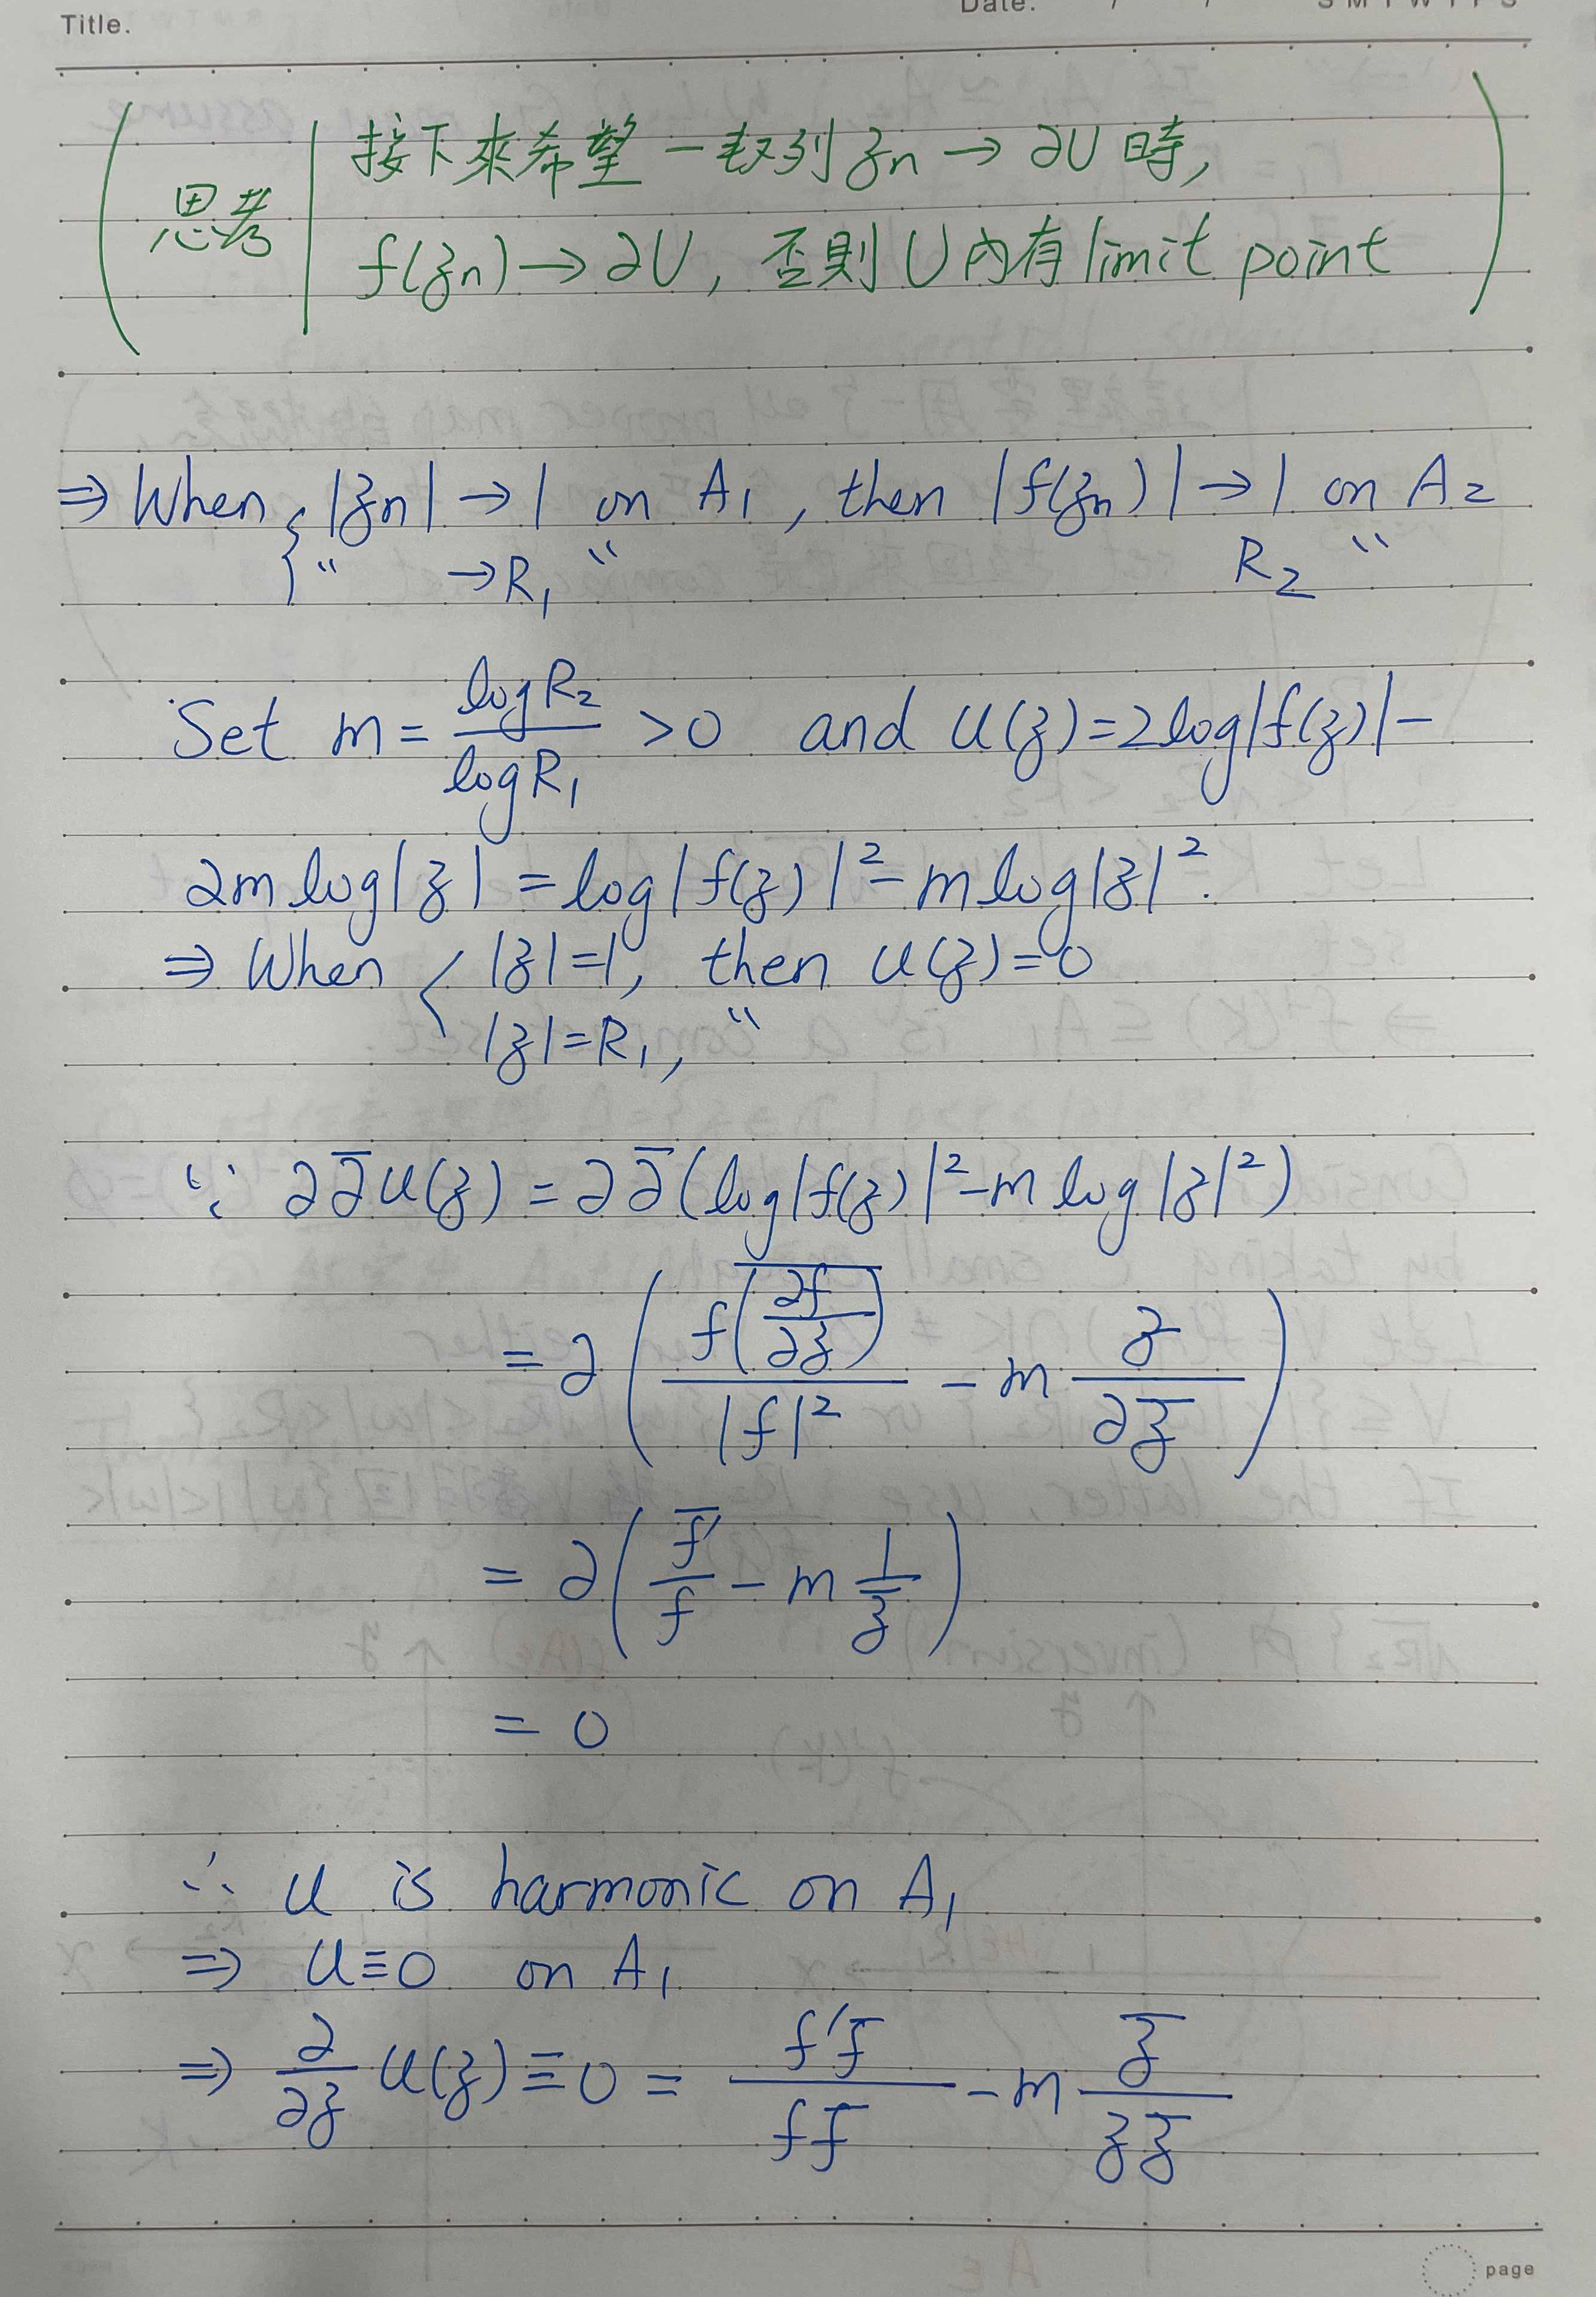 Title.
Date. / / S M T W T F S
思考 | 接下來希望一数列 zn → ∂U 時,
f(zn) → ∂U, 否則 U 內有 limit point
⇒ When { |zn| → 1 on A₁, then |f(zn)| → 1 on A₂
" → R₁ " R₂ "
Set m = log R₂ / log R₁ > 0 and u(z) = 2log|f(z)| −
2m log|z| = log|f(z)|² − m log|z|².
⇒ When { |z| = 1, then u(z) = 0
|z| = R₁, "
∵ ∂∂̄u(z) = ∂∂̄(log|f(z)|² − m log|z|²)
= ∂( f \overline{(∂f/∂z)} / |f|² − m z / ∂z̄ )
= ∂( f̄′ / f − m 1/z̄ )
= 0
∴ u is harmonic on A₁
⇒ u ≡ 0 on A₁
⇒ ∂/∂z u(z) ≡ 0 = f′f̄ / ff̄ − m z̄ / zz̄
page